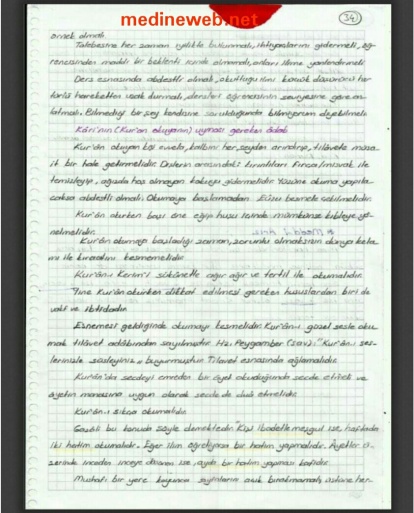 medineweb.net
34
örnek olmalı.
Talebesine her zaman iyilikte bulunmalı, ihtiyaçlarını gidermeli, öğ-
rencisinden maddi bir beklenti içinde olmamalı, onları ilme yönlendirmeli
Ders esnasında abdestli olmalı, okuttuğu ilmi küçük düşürücü her
türlü hareketten uzak durmalı, dersleri öğrencisinin seviyesine göre an-
latmalı. Bilmediği bir şey kendisine sorulduğunda bilmiyorum diyebilmeli.
Kâri'nin (Kur'an okuyanın) uyması gereken âdâb
Kur'ân okuyan kişi evvela, kalbini her şeyden arındırıp, tilâvete müsa-
it bir hale getirmelidir. Dişlerin arasındaki kırıntıları fırça/misvak ile
temizleyip, ağızda hoş olmayan kokuyu gidermelidir. Yüzüne okuma yapıla-
caksa abdestli olmalı. Okumaya başlamadan Eûzu besmele çekilmelidir.
Kur'ân okurken başı öne eğip huşu içinde mümkünse kıbleye yö-
nelmelidir.
Kur'ân okumaya başladığı zaman, zorunlu olmadıkça dünya kela-
mı ile kıraatını kesmemelidir.
Kur'ân-ı Kerim'i sükûnetle ağır ağır ve tertil ile okumalıdır.
Yine Kur'ân okurken dikkat edilmesi gereken hususlardan biri de
vakf ve ibtidâdır.
Esnemesi geldiğinde okumayı kesmelidir. Kur'ân-ı güzel sesle oku-
mak tilâvet adâbından sayılmıştır. Hz. Peygamber (sav): "Kur'ân-ı ses-
lerinizle süsleyiniz" buyurmuştur. Tilâvet esnasında ağlamalıdır.
Kur'ân'da secdeyi emreden bir âyet okuduğunda secde etmeli ve
âyetin manasına uygun olarak secdede dua etmelidir.
Kur'ân-ı sıkça okumalıdır.
Gazâli bu konuda şöyle demektedir: Kişi ibadetle meşgul ise, haftada
iki hatim okumalıdır. Eğer ilim öğretiyorsa bir hatim yapmalıdır. Âyetler ü-
zerinde inceden inceye düşünen ise, ayda bir hatim yapması kâfidir.
Mushafı bir yere koyunca sayfalarını açık bırakmamalı, üstüne her-